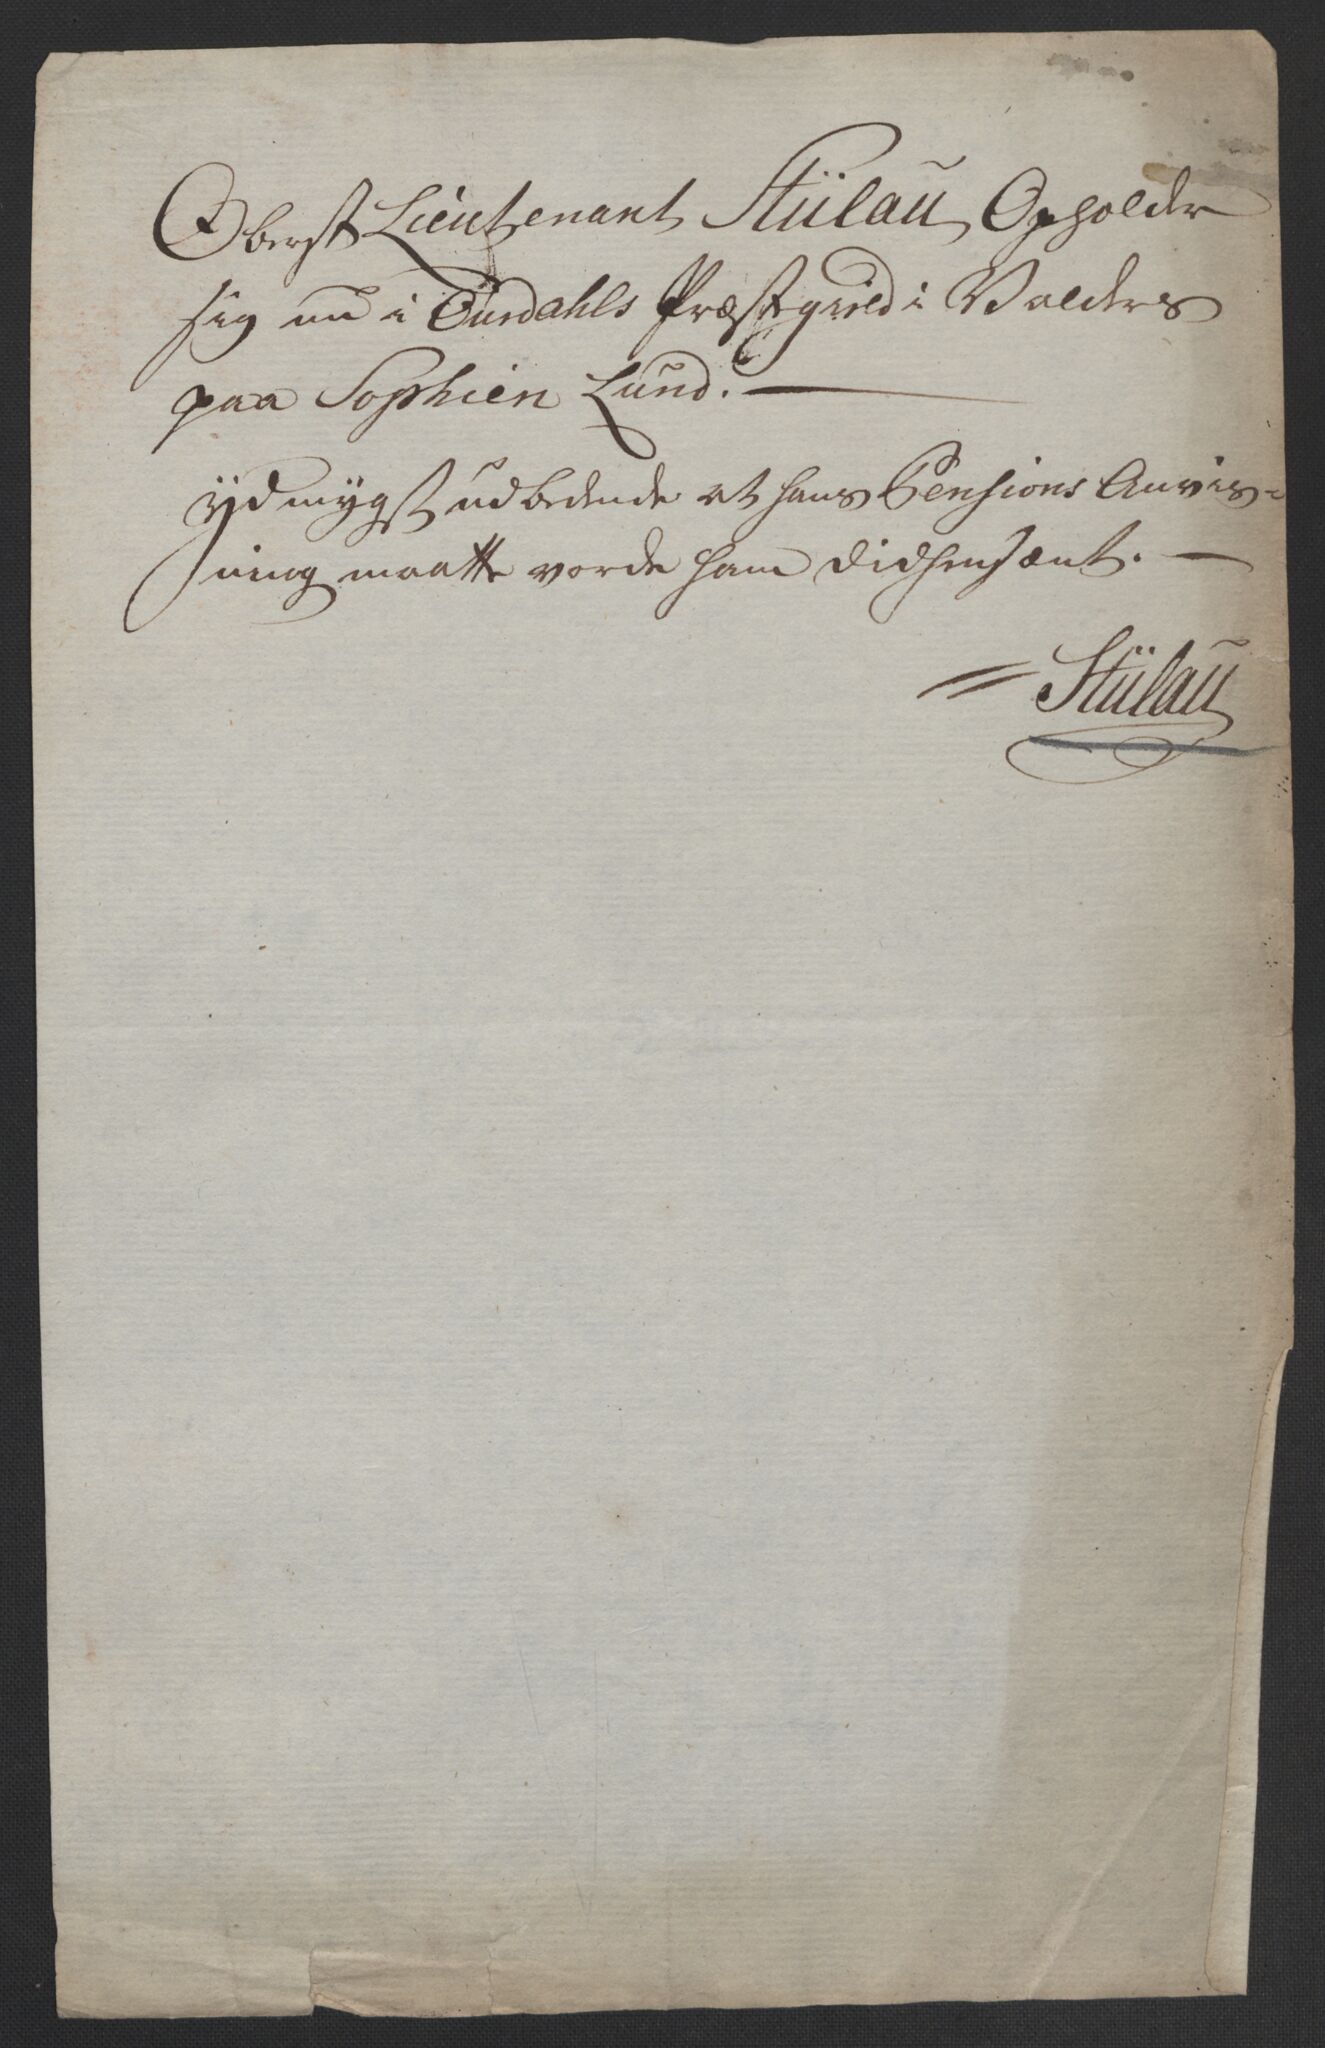 Oberst Lieutenant Stülau Opholder
sig nu i Ourdahls Præstegield i Valders
paa Sophien Lund.
ydmygst udbedende at hans Pensions Anvis-
ning maatte vorde ham didhensændt.
Stülau